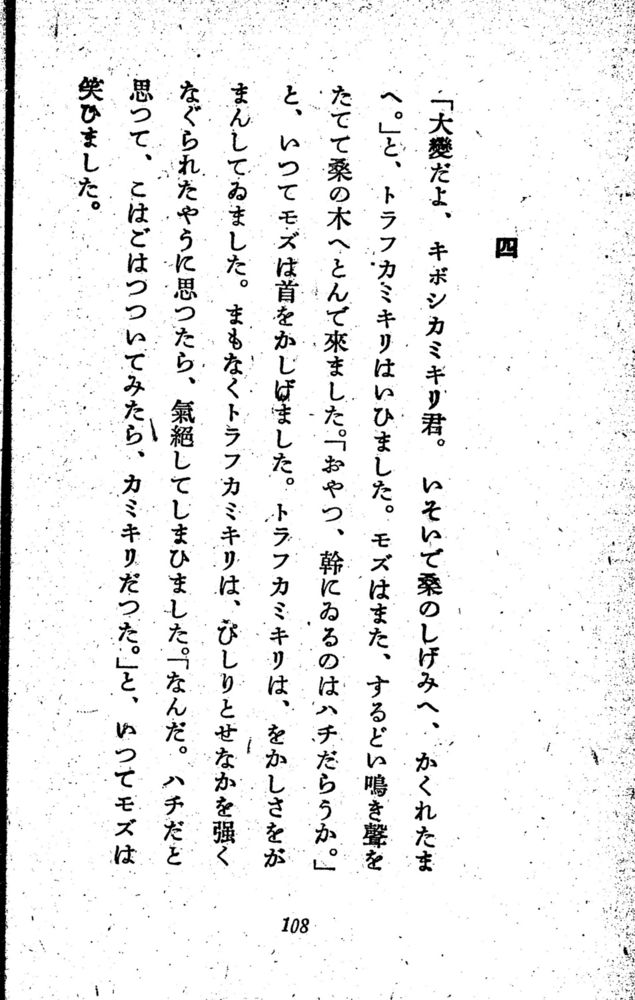 四
「大變だよ、キボシカミキリ君。いそいで桑のしげみへ、かくれたま
へ。」と、トラフカミキリはいひました。モズはまた、するどい鳴き聲を
たてて桑の木へとんで來ました。「おやつ、幹にゐるのはハチだらうか。」
と、いつてモズは首をかしげました。トラフカミキリは、をかしさをが
まんしてゐました。まもなくトラフカミキリは、ぴしりとせなかを强く
なぐられたやうに思つたら、氣絕してしまひました。「なんだ。ハチだと
思つて、こはごはつついてみたら、カミキリだつた。」と、いつてモズは
笑ひました。
108